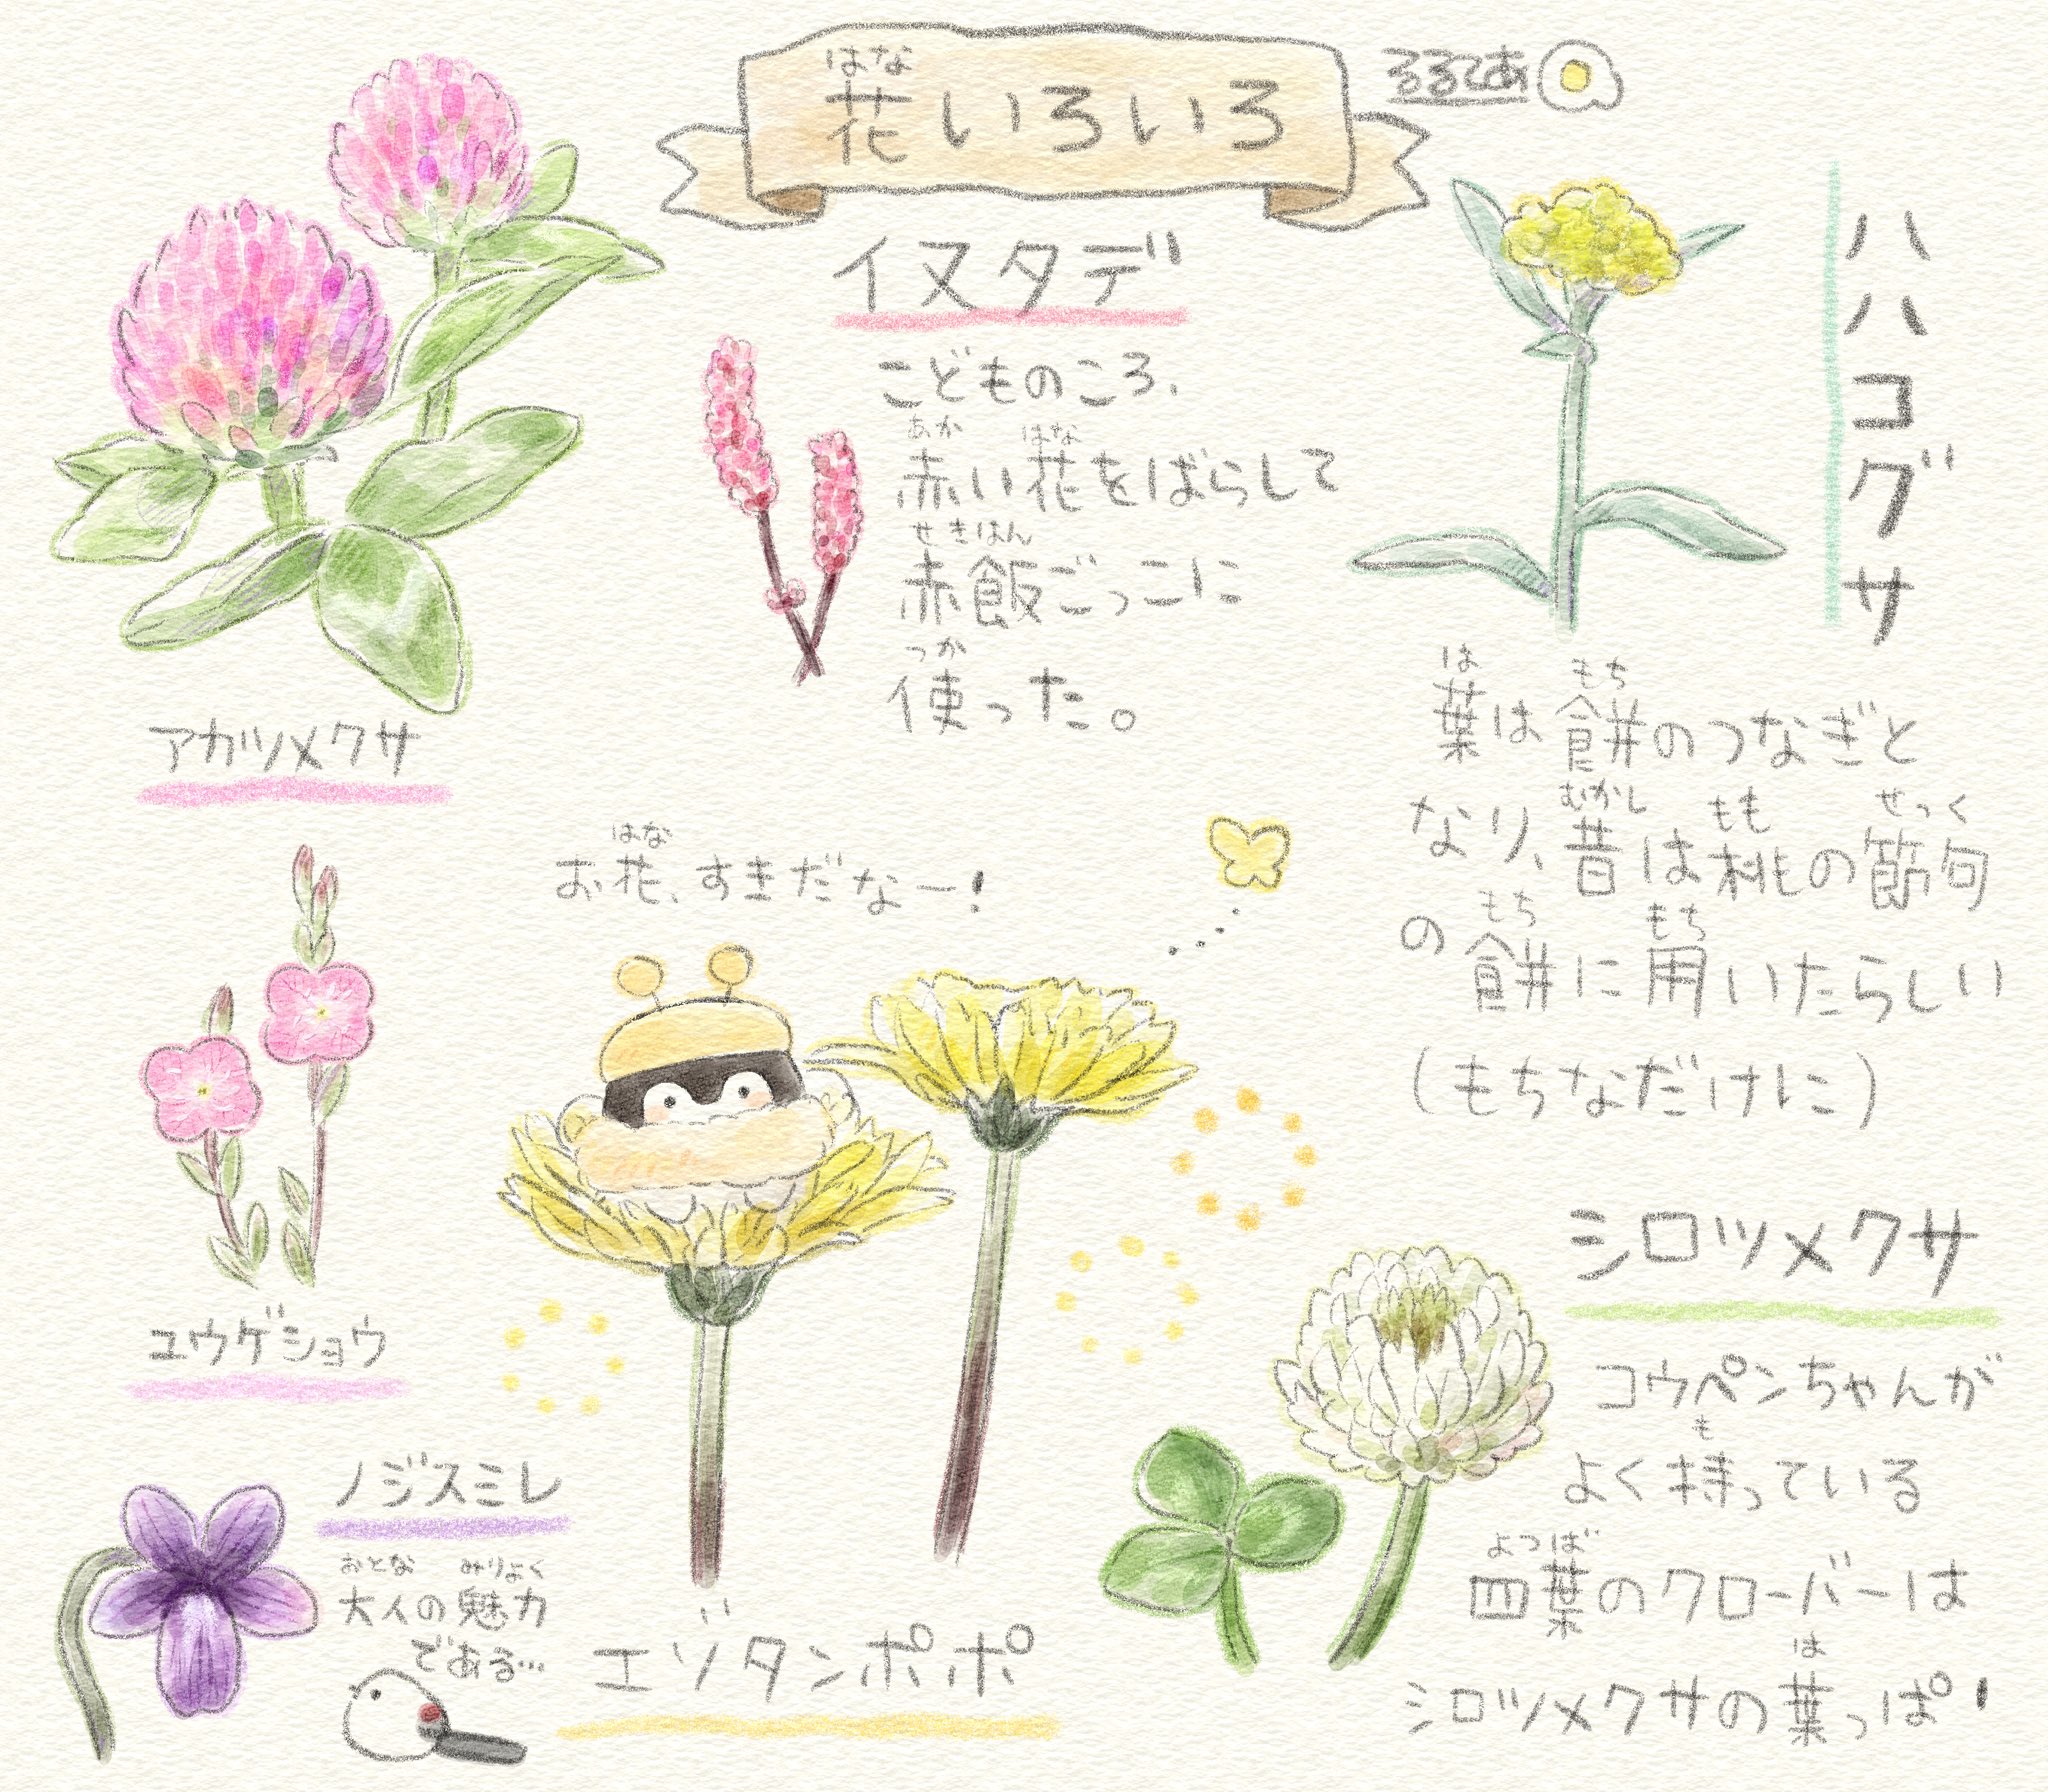 はな
花いろいろ
るるてあ
アカツメクサ
イヌタデ
こどものころ、
あか はな
赤い花をばらして
せきはん
赤飯ごっこに
つか
使った。
ハハコグサ
は もち
葉は餅のつなぎと
むかし もも せっく
なり、昔は桃の節句
もち もち
の餅に用いたらしい
(もちなだけに)
はな
お花、すきだなー!
ユウゲショウ
ノジスミレ
おとな みりよく
大人の魅力
である…
エゾタンポポ
シロツメクサ
コウペンちゃんが
も
よく持っている
よつば
四葉のクローバーは
は
シロツメクサの葉っぱ!